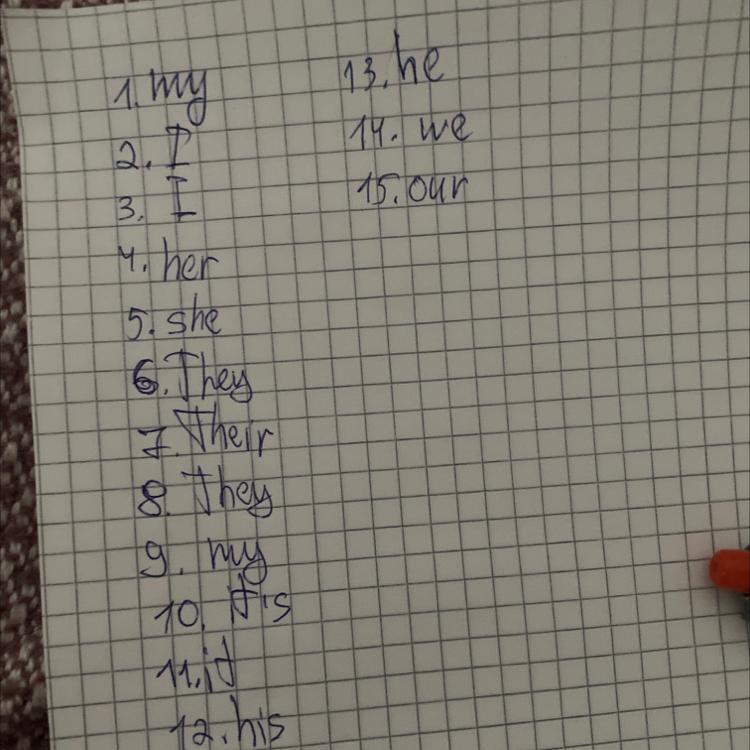 1. my
2. I
3. I
4. her
5. she
6. They
7. Their
8. They
9. my
10. It's
11. it
12. his
13. he
14. we
15. our